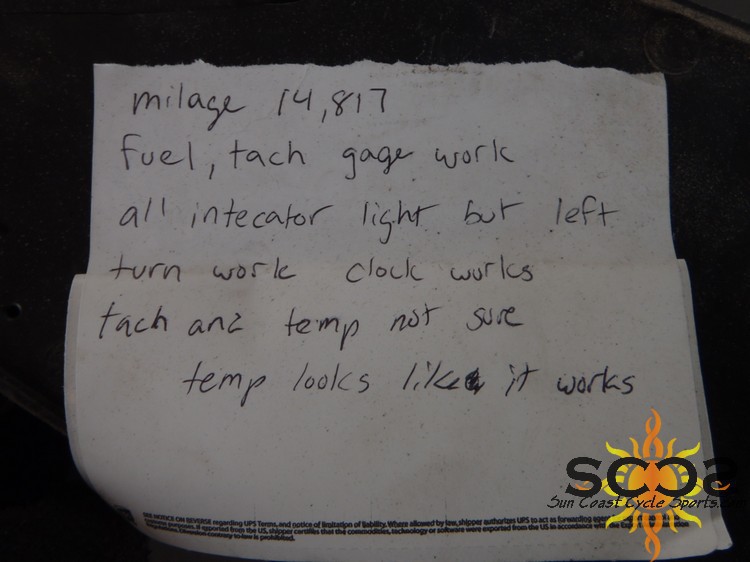 milage 14,817
fuel, tach gage work
all intecator light but left
turn work clock works
tach and temp not sure
temp looks like it works
SEE NOTICE ON REVERSE regarding UPS Terms, and notice of limitation of liability. Where allowed by law, shipper authorizes UPS to act as forwarding agent
purposes. If exported from the US, shipper certifies that the commodities, technology or software were exported from the US in accordance with
Regulations. Diversion contrary to law is prohibited.
SCCS
Sun Coast Cycle Sports